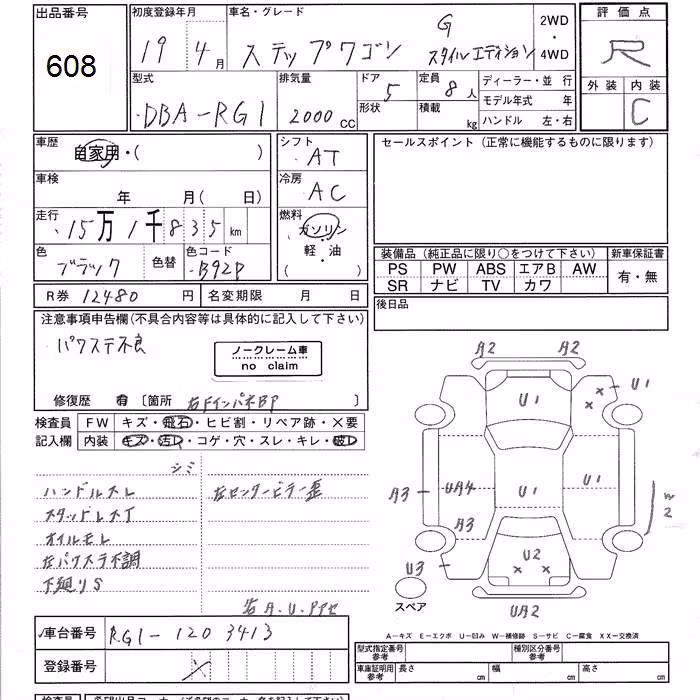 出品番号 初度登録年月 車名・グレード 評価点
608
19年 4月 ステップワゴン G スタイルエディション 2WD・4WD
R
外装 内装
C
型式 排気量 ドア 定員 ディーラー・並行
DBA-RG1 2000cc 5 8人
形状 積載 kg モデル年式 年
ハンドル 左・右
車歴 自家用・( )
シフト AT
セールスポイント(正常に機能するものに限ります)
車検 年 月( 日)
冷房 AC
走行 15万1千835km
燃料 ガソリン 軽・油 ( )
色 ブラック 色替 色コード B92P
装備品(純正品に限り○をつけて下さい) 新車保証書
PS PW ABS エアB AW 有・無
SR ナビ TV カワ
R券 12480円 名変期限 月 日
後日品
注意事項申告欄(不具合内容等は具体的に記入して下さい)
パワステ不良
ノークレーム車
no claim
修復歴 有 〔箇所 右Fインパネ 〕
検査員 FW キズ・飛石・ヒビ割・リペア跡・×要
記入欄 内装 キズ・汚レ・コゲ・穴・スレ・キレ・破レ
シミ
ハンドルスレ 左センターピラー歪
スタッドレスT
オイルモレ
左パワステ不調
下廻りS
A2 A2
U1 U1
A3 UA4 U1 U1 W2
A3
U3 U2
UA2
スペア
A-キズ E-エクボ U-凹み W-補修跡 S-サビ C-腐食 XX-交換済
車台番号 RG1-1203413
登録番号
型式指定番号 参考 種別区分番号 参考
車庫証明用 参考 長さ cm 幅 cm 高さ cm